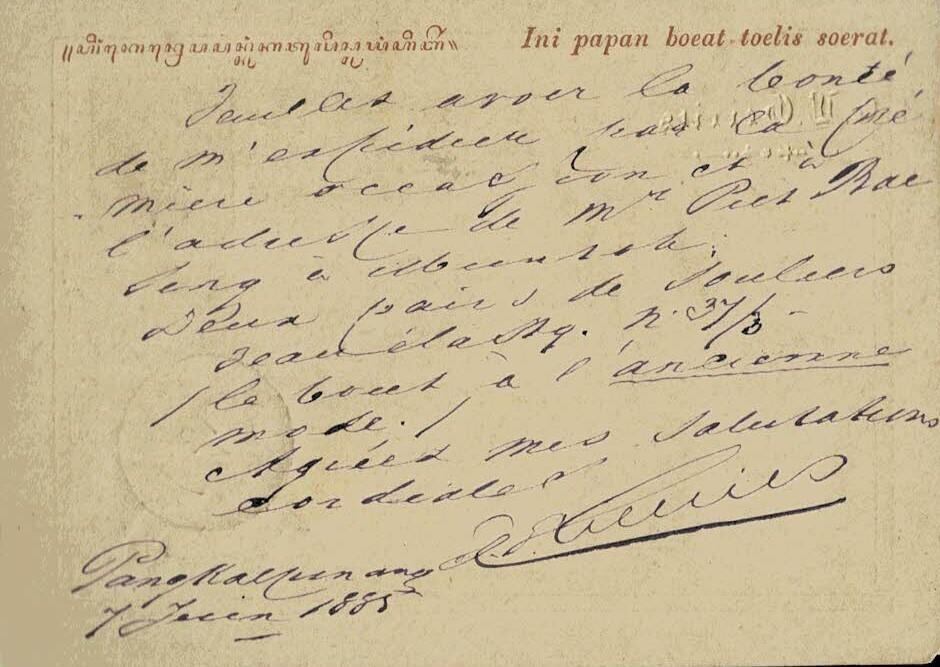 Ini papan boeat toelis soerat.
Veuillez avoir la bonté
de m'expédier par la pre
mière occasion et à
l'adresse de Mr Piet Bae
Seng à Muntok:
Deux pairs de souliers
veau élastq. N. 37/3
/ le bout à l'ancienne
mode. /
Agréez mes salutations
cordiales
Pangkalpinang
7 Juin 1885